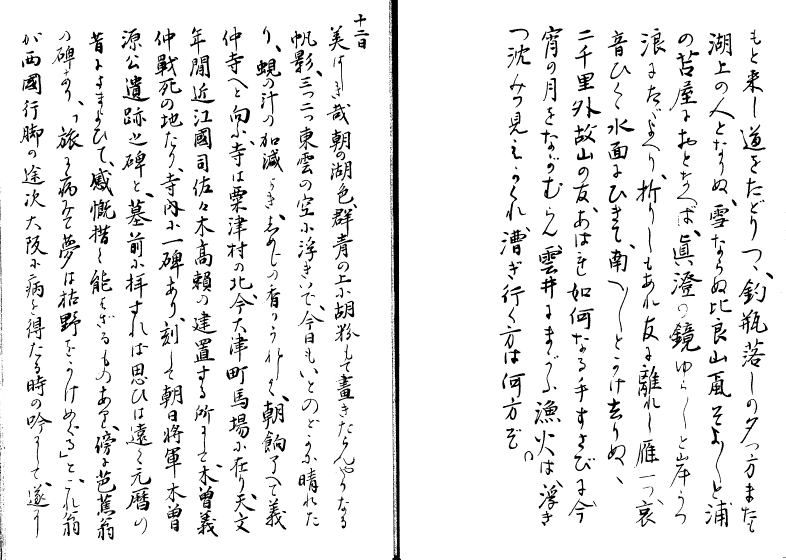 もと来し道をたどりつゝ、釣瓶落しの夕つ方またも
湖上の人となりぬ、雪ならぬ比良山颪そよ〱と浦
の苫屋におとなへば、眞澄の鏡ゆら〱と岸うつ
浪にたゞよへり、折りしもあれ友に離れし雁一つ哀
音ひくく水面にひきて、南へ〱とかけ去りぬ、
二千里外故山の友、あはれ如何なる手すさびに今
宵の月をながむらん、雲井にまがふ漁火は、浮き
つ沈みつ見えかくれ、漕ぎ行く方は何方ぞ。
十二日
美はしき哉朝の湖色、群青の上に胡粉もて畫きたらんやうなる
帆影、三つ二つ東雲の空に浮きいで、今日もいとのどかに晴れた
り、蜆の汁の加減よき、の香のうれしく、朝餉了へて義
仲寺へと向ふ、寺は粟津村の北、今大津町馬場に在り、天文
年間近江國司佐々木高頼の建置する所にて、木曽義
仲戰死の地たり、寺内に一碑あり、刻して朝日將軍木曽
源公遺跡之碑と、墓前に拝すれば思ひは遠く元暦の
昔にさまよひて、感慨措く能はざるものあり、傍に芭蕉翁
の碑あり、「旅に病みて夢は枯野をかけめぐる」と、これ翁
が西國行脚の途次大阪に病を得たる時の吟にして、遂に